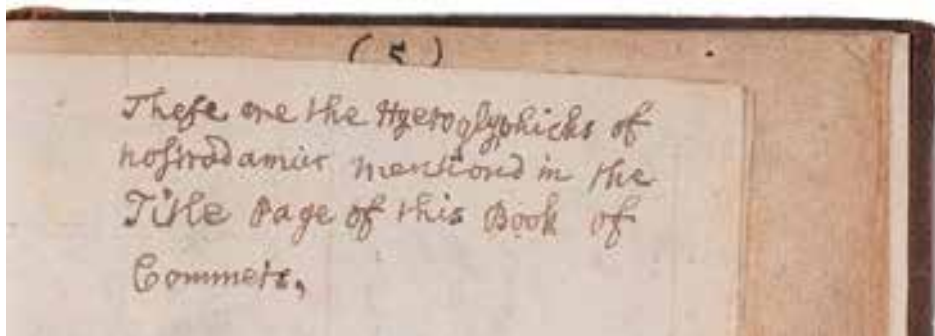 (5)
These are the Hyeroglyphicks of
nostrodamus mentiond in the
Title Page of this Book of
Commets,